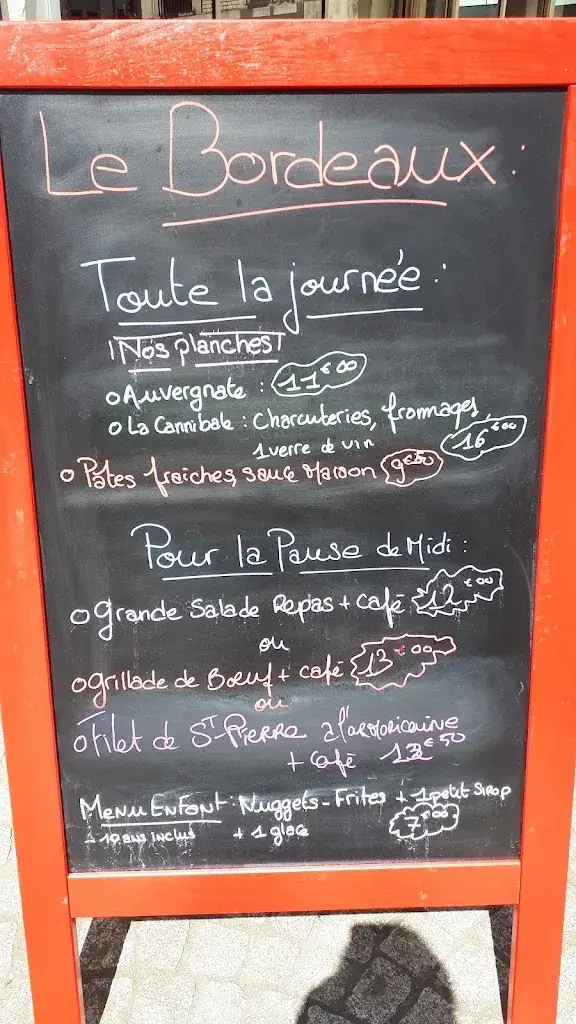 Le Bordeaux :
Toute la journée :
Nos planches !
o Auvergnate : 11€00
o La Cannibale : Charcuteries, fromages,
1 verre de vin 16€00
o Pâtes fraiches, sauce Maison 9€50
Pour la Pause de Midi :
o Grande Salade Repas + café 12€00
ou
o Grillade de Bœuf + café 13€00
ou
o Filet de ST-PIERRE à l'armoricaine
+ café €50
Menu Enfant : Nuggets - Frites + 1 petit Sirop
- 10 ans inclus + 1 glace 7€00